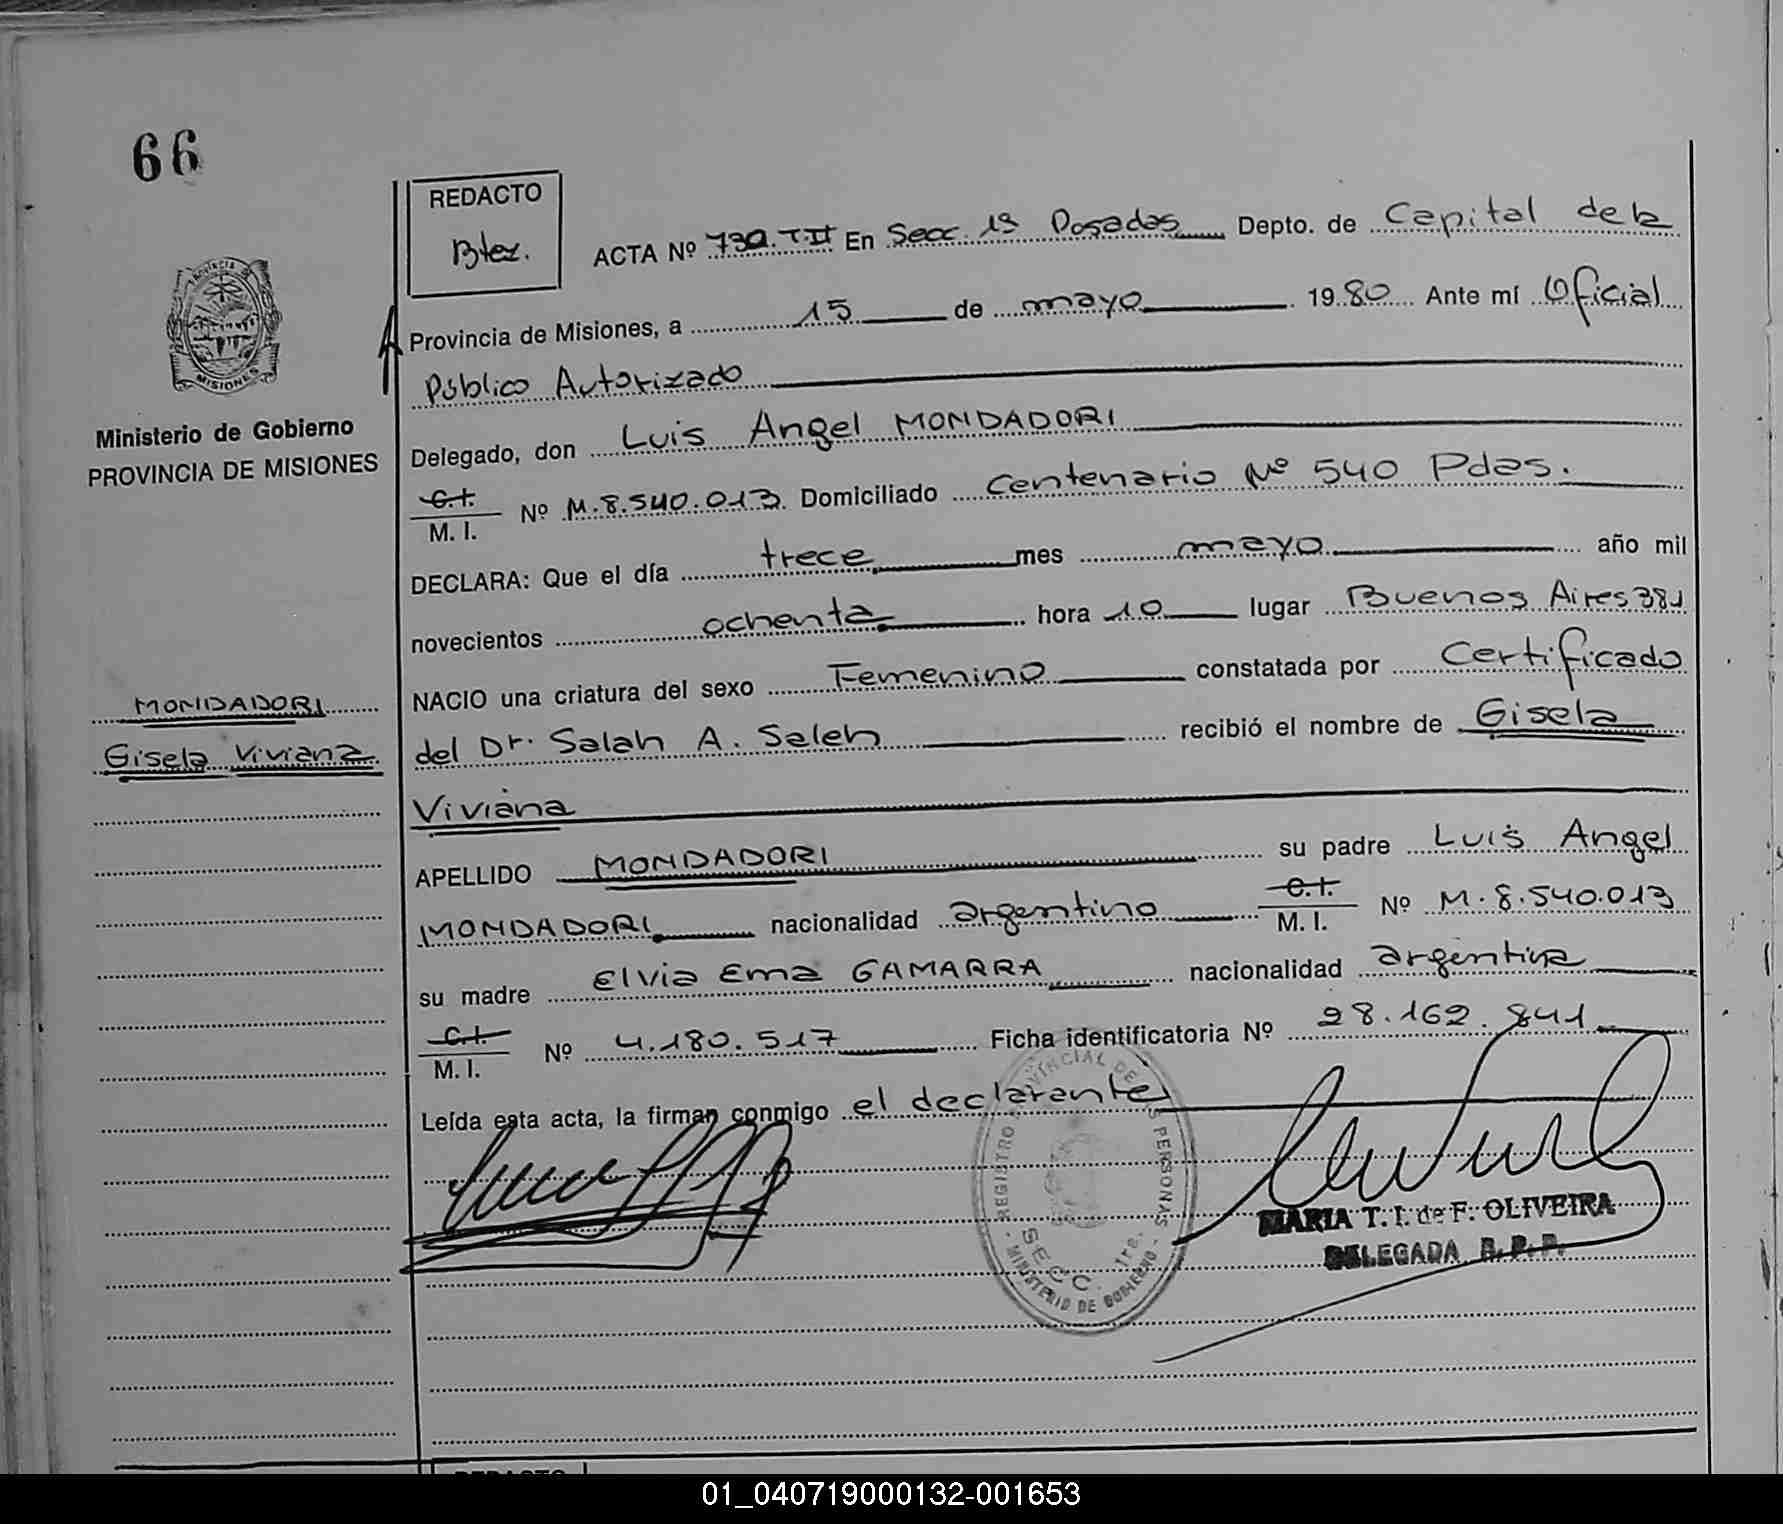 66
REDACTO
Btez.
ACTA Nº 730.T.II En Secc. 1ª Posadas Depto. de Capital de la
Provincia de Misiones, a 15 de mayo 1980 Ante mí Oficial
Público Autorizado
Delegado, don Luis Angel MONDADORI
C.I.
M. I. Nº M.8.540.013 Domiciliado Centenario Nº 540 Pdas.
DECLARA: Que el día trece mes mayo año mil
novecientos ochenta hora 10 lugar Buenos Aires 381
NACIO una criatura del sexo Femenino constatada por Certificado
del Dr. Salah A. Saleh recibió el nombre de Gisela
Viviana
APELLIDO MONDADORI su padre Luis Angel
MONDADORI nacionalidad argentino C.I. M. I. Nº M.8.540.013
su madre Elvia Ema GAMARRA nacionalidad argentina
C.I.
M. I. Nº 4.180.517 Ficha identificatoria Nº 28.162.841
Leída esta acta, la firman conmigo el declarante
PROVINCIA
MISIONES
Ministerio de Gobierno
PROVINCIA DE MISIONES
MONDADORI
Gisela Viviana
REGISTRO PROVINCIAL DE PERSONAS
SECC. 1ra.
MINISTERIO DE GOBIERNO
MARIA T. I. de F. OLIVEIRA
DELEGADA R. P. P.
REDACTO
01_040719000132-001653